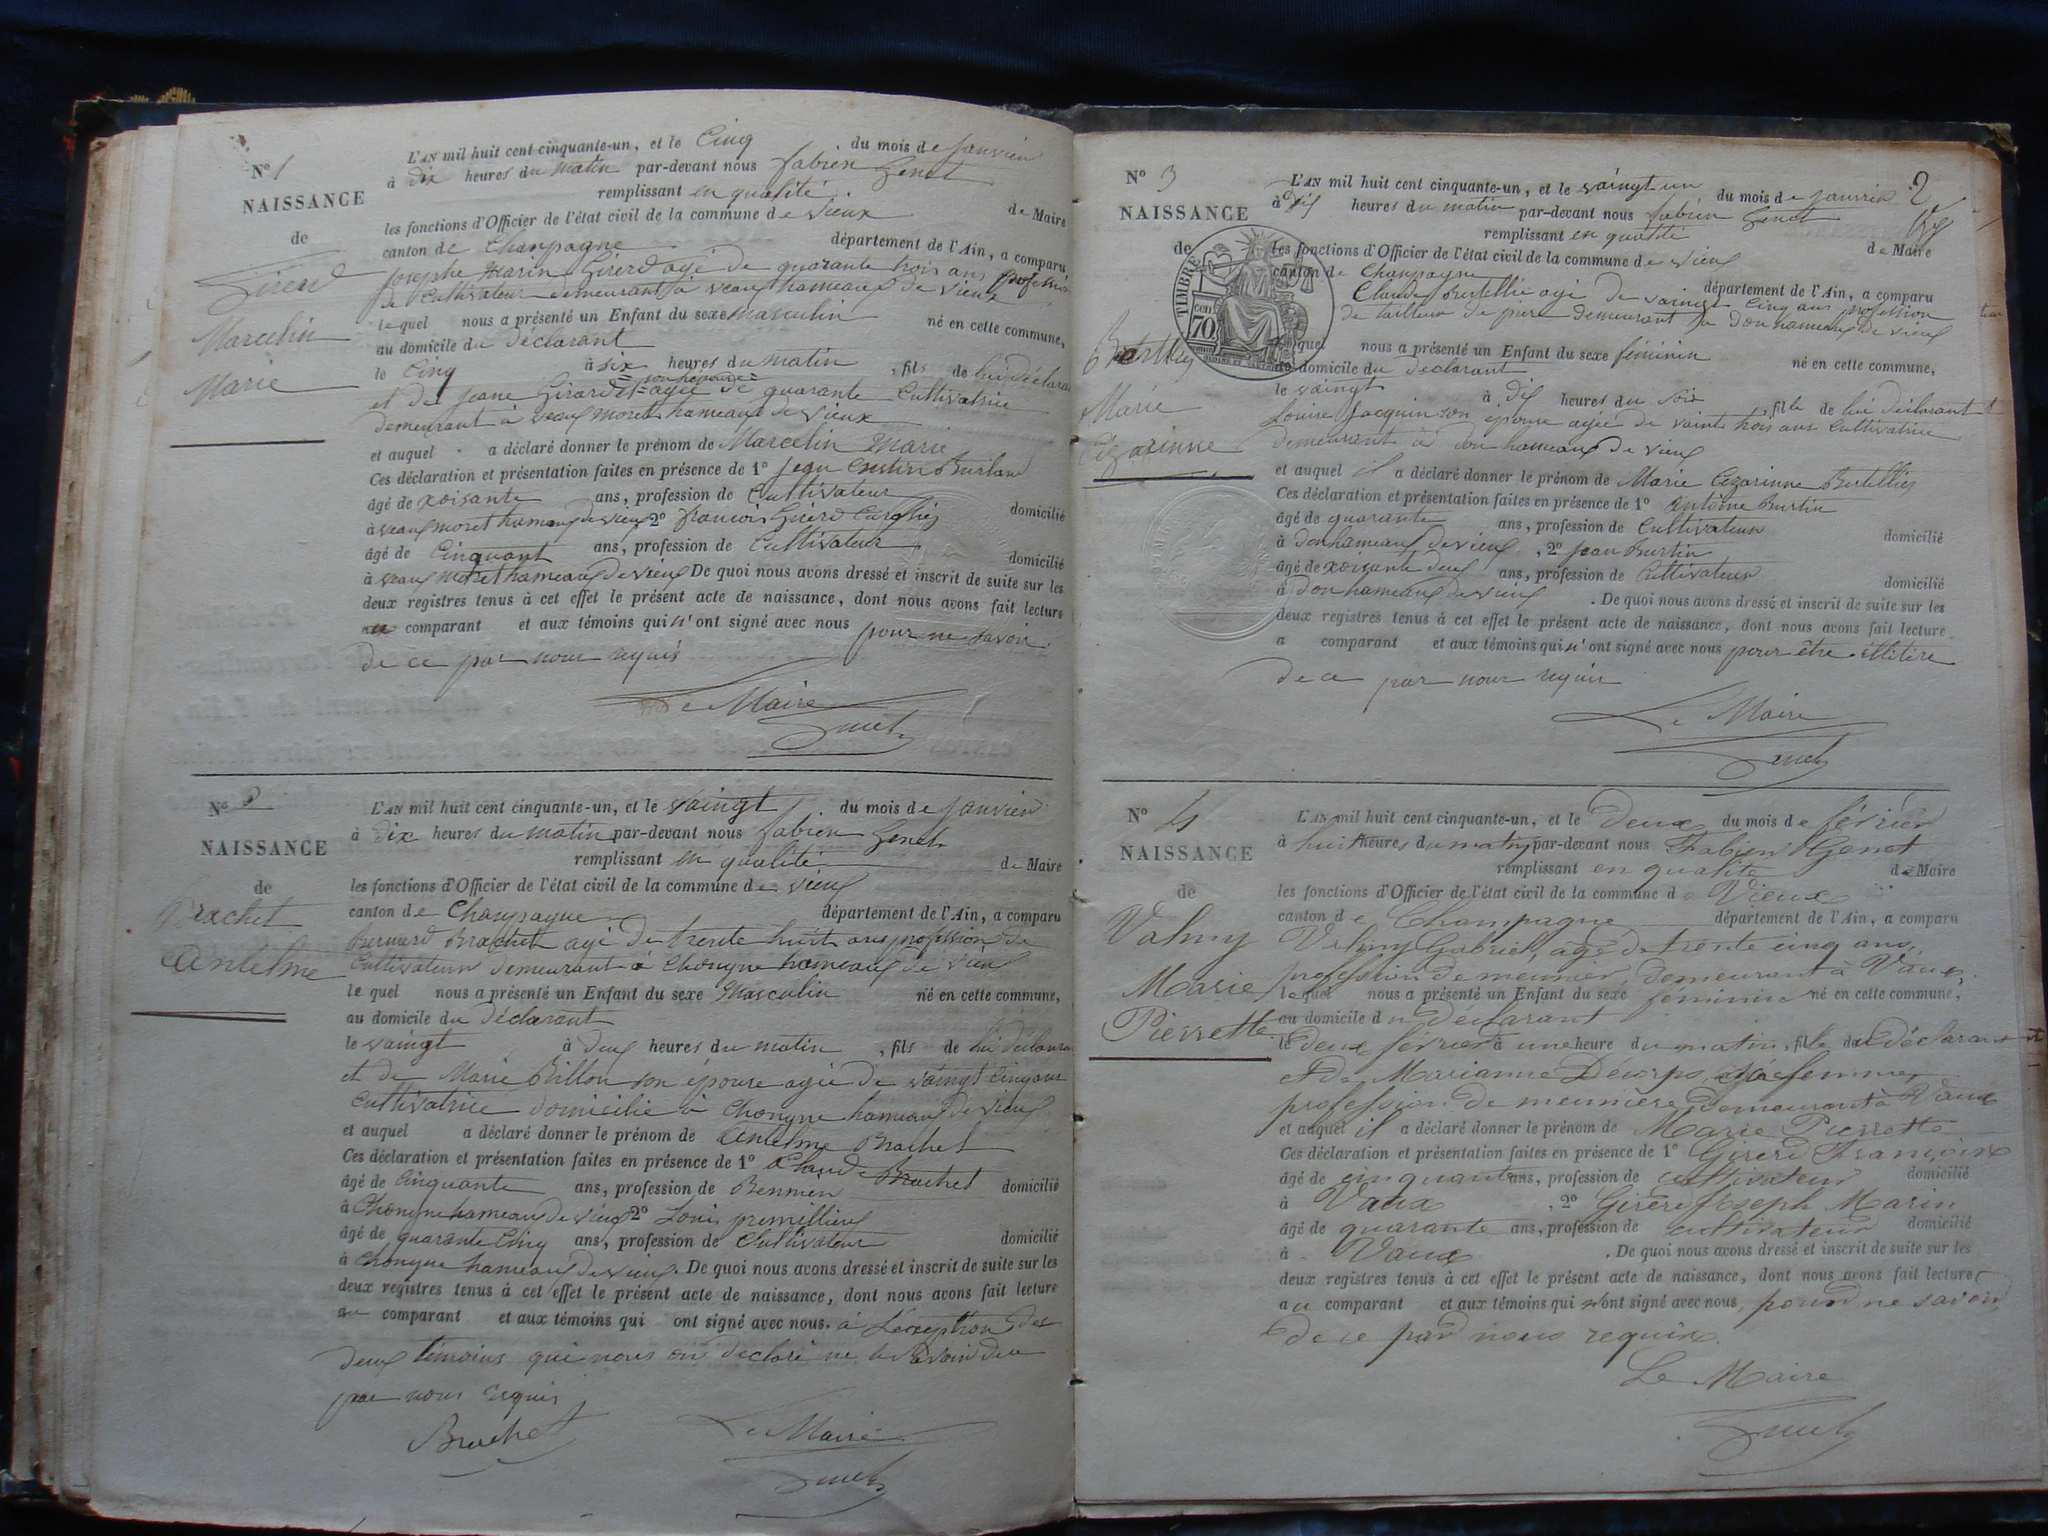 N° 1
NAISSANCE
de
Girerd
Marcelin
Marie
L'AN mil huit cent cinquante-un, et le Cinq du mois de janvier
à dix heures du matin par-devant nous fabien Genet
remplissant en qualité de Maire
les fonctions d'Officier de l'état civil de la commune de vieux
canton de Champagne département de l'Ain, a comparu
josephe marin Girerd agé de quarante trois ans profession
de Cultivateur demeurant à veaux hameaux de vieux
lequel nous a présenté un Enfant du sexe masculin né en cette commune,
au domicile du déclarant
le Cinq à six heures du matin , fils de lui déclarant
et de jeane Girard son épouse agée de quarante Cultivatrice
demeurant à veaux moret hameaux de vieux
et auquel a déclaré donner le prénom de Marcelin Marie
Ces déclaration et présentation faites en présence de 1°
âgé de xoisante ans, profession de Cultivateur domicilié
à veaux moret hameaux de vieux 2° francois Girerd
âgé de Cinquant ans, profession de Cultivateur domicilié
à veaux moret hameaux de vieux De quoi nous avons dressé et inscrit de suite sur les
deux registres tenus à cet effet le présent acte de naissance, dont nous avons fait lecture
au comparant et aux témoins qui n'ont signé avec nous pour ne savoir
de ce par nous requis
Le Maire
Genet
N° 2
NAISSANCE
de
Brachet
Antelme
L'AN mil huit cent cinquante-un, et le vaingt du mois de janvier
à dix heures du matin par-devant nous fabien Genet
remplissant en qualité de Maire
les fonctions d'Officier de l'état civil de la commune de vieux
canton de Champagne département de l'Ain, a comparu
Bernard Brachet agé de trente huit ans profession de
Cultivateur demeurant à Chongne hameaux de vieux
le quel nous a présenté un Enfant du sexe masculin né en cette commune,
au domicile du déclarant
le vaingt à deux heures du matin , fils de lui déclarant
et de Marie Billon son épouse agée de vaingt cinq ans
cultivatrice domicilié à Chongne hameaux de vieux
et auquel a déclaré donner le prénom de Antelme Brachet
Ces déclaration et présentation faites en présence de 1° Claude Brachet
âgé de Cinquante ans, profession de domicilié
à Chongne hameaux de vieux 2° Louis premillieux
âgé de quarante Cinq ans, profession de Cultivateur domicilié
à Chongne hameaux de vieux. De quoi nous avons dressé et inscrit de suite sur les
deux registres tenus à cet effet le présent acte de naissance, dont nous avons fait lecture
au comparant et aux témoins qui ont signé avec nous. à Lexeption des
deux témoins qui nous on déclaré ne le savoir de ce
par nous requis
Brachet
Le Maire
Genet
2
N° 3
NAISSANCE
de
Marie
Cézarinne
TIMBRE
70
L'AN mil huit cent cinquante-un, et le vaingt un du mois de janvier
à dix heures du matin par-devant nous fabien Genet
remplissant en qualité de Maire
les fonctions d'Officier de l'état civil de la commune de vieux
canton de Champagne département de l'Ain, a comparu
Claude Bertellie agé de vaingt Cinq ans profession
de tailleur de piere demeurant à don hameaux de vieux
lequel nous a présenté un Enfant du sexe féminin né en cette commune,
au domicile du déclarant
le vaingt à dix heures du soir , fille de lui déclarant
Louise Jacquin son épouse agée de vaint trois ans Cultivatrice
demeurant à don hameaux de vieux
et auquel il a déclaré donner le prénom de Marie Cézarinne
Ces déclaration et présentation faites en présence de 1° antoine Burtin
âgé de quarante ans, profession de Cultivateur domicilié
à don hameaux de vieux , 2° jean Burtin
âgé de xoisante deux ans, profession de Cultivateur domicilié
à don hameaux de vieux . De quoi nous avons dressé et inscrit de suite sur les
deux registres tenus à cet effet le présent acte de naissance, dont nous avons fait lecture
a comparant et aux témoins qui n'ont signé avec nous pour être illitire
de ce par nous requis
Le Maire
Genet
N° 4
NAISSANCE
de
Valmy
Marie
Pierrette
L'AN mil huit cent cinquante-un, et le Deux du mois de février
à huit heures du matin par-devant nous Fabien Genet
remplissant en qualité de Maire
les fonctions d'Officier de l'état civil de la commune de Vieux
canton de Champagne département de l'Ain, a comparu
Valmy Gabriel, agé de trente cinq ans,
profession de meunier, demeurant à Vaux,
lequel nous a présenté un Enfant du sexe feminin né en cette commune,
au domicile du déclarant
le deux février à une heure du matin, fille du déclarant
et de Marianne Decorps, sa femme,
profession de meunière demeurant à Vaux
et auquel il a déclaré donner le prénom de Marie Pierrette
Ces déclaration et présentation faites en présence de 1° Girerd François
âgé de cinquante ans, profession de cultivateur domicilié
à Vaux , 2° Girerd Joseph Marin
âgé de quarante ans, profession de cultivateur domicilié
à Vaux . De quoi nous avons dressé et inscrit de suite sur les
deux registres tenus à cet effet le présent acte de naissance, dont nous avons fait lecture
au comparant et aux témoins qui n'ont signé avec nous, pour ne savoir,
de ce par nous requis.
Le Maire
Genet